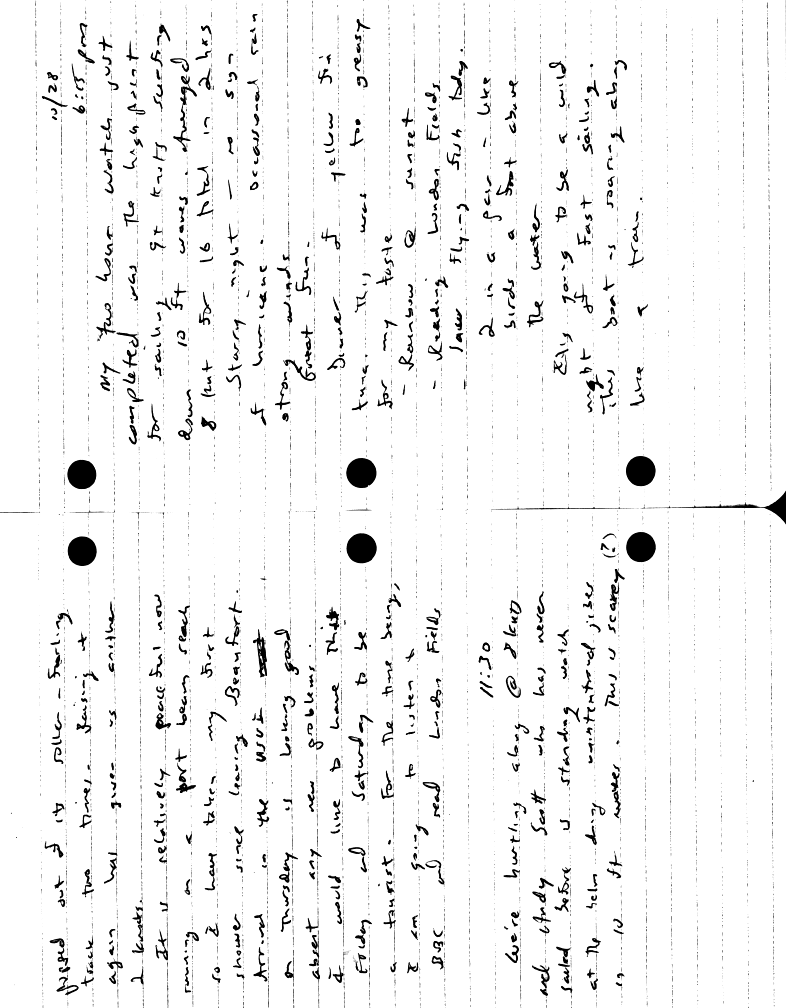 popped out of its roller-furling
track two times. Raising it
again has given us another
2 knots.
It is relatively peaceful now
running on a port beam reach
so I have taken my first
shower since leaving Beaufort.
Arrival in the USVI
on Thursday is looking good
absent any new problems.
I would like to have
Friday and Saturday to be
a tourist. For the time being,
I am going to listen to
BBC and read London Fields
11:30
We're hurtling along @ 8 knots
and Scott who has never
sailed before is standing watch
at the helm doing unintentional jibes
in 10 ft waves. This is scarey (?)
10/28
6:15 pm
My two hour watch just
completed was the high point
for sailing 9+ knots surfing
down 10 ft waves. Averaged
8 knt for 16 total in 2 hrs
Starry night – no sign
of hurricane. Occassional rain
strong winds
Great fun.
Dinner of yellow fin
tuna. This was too greasy
for my taste
- Rainbow @ sunset
- Reading London Fields
- Saw flying fish today.
2 in a pair – like
birds a foot above
the water
This going to be a wild
night of fast sailing.
This boat is roaring along
like a train.